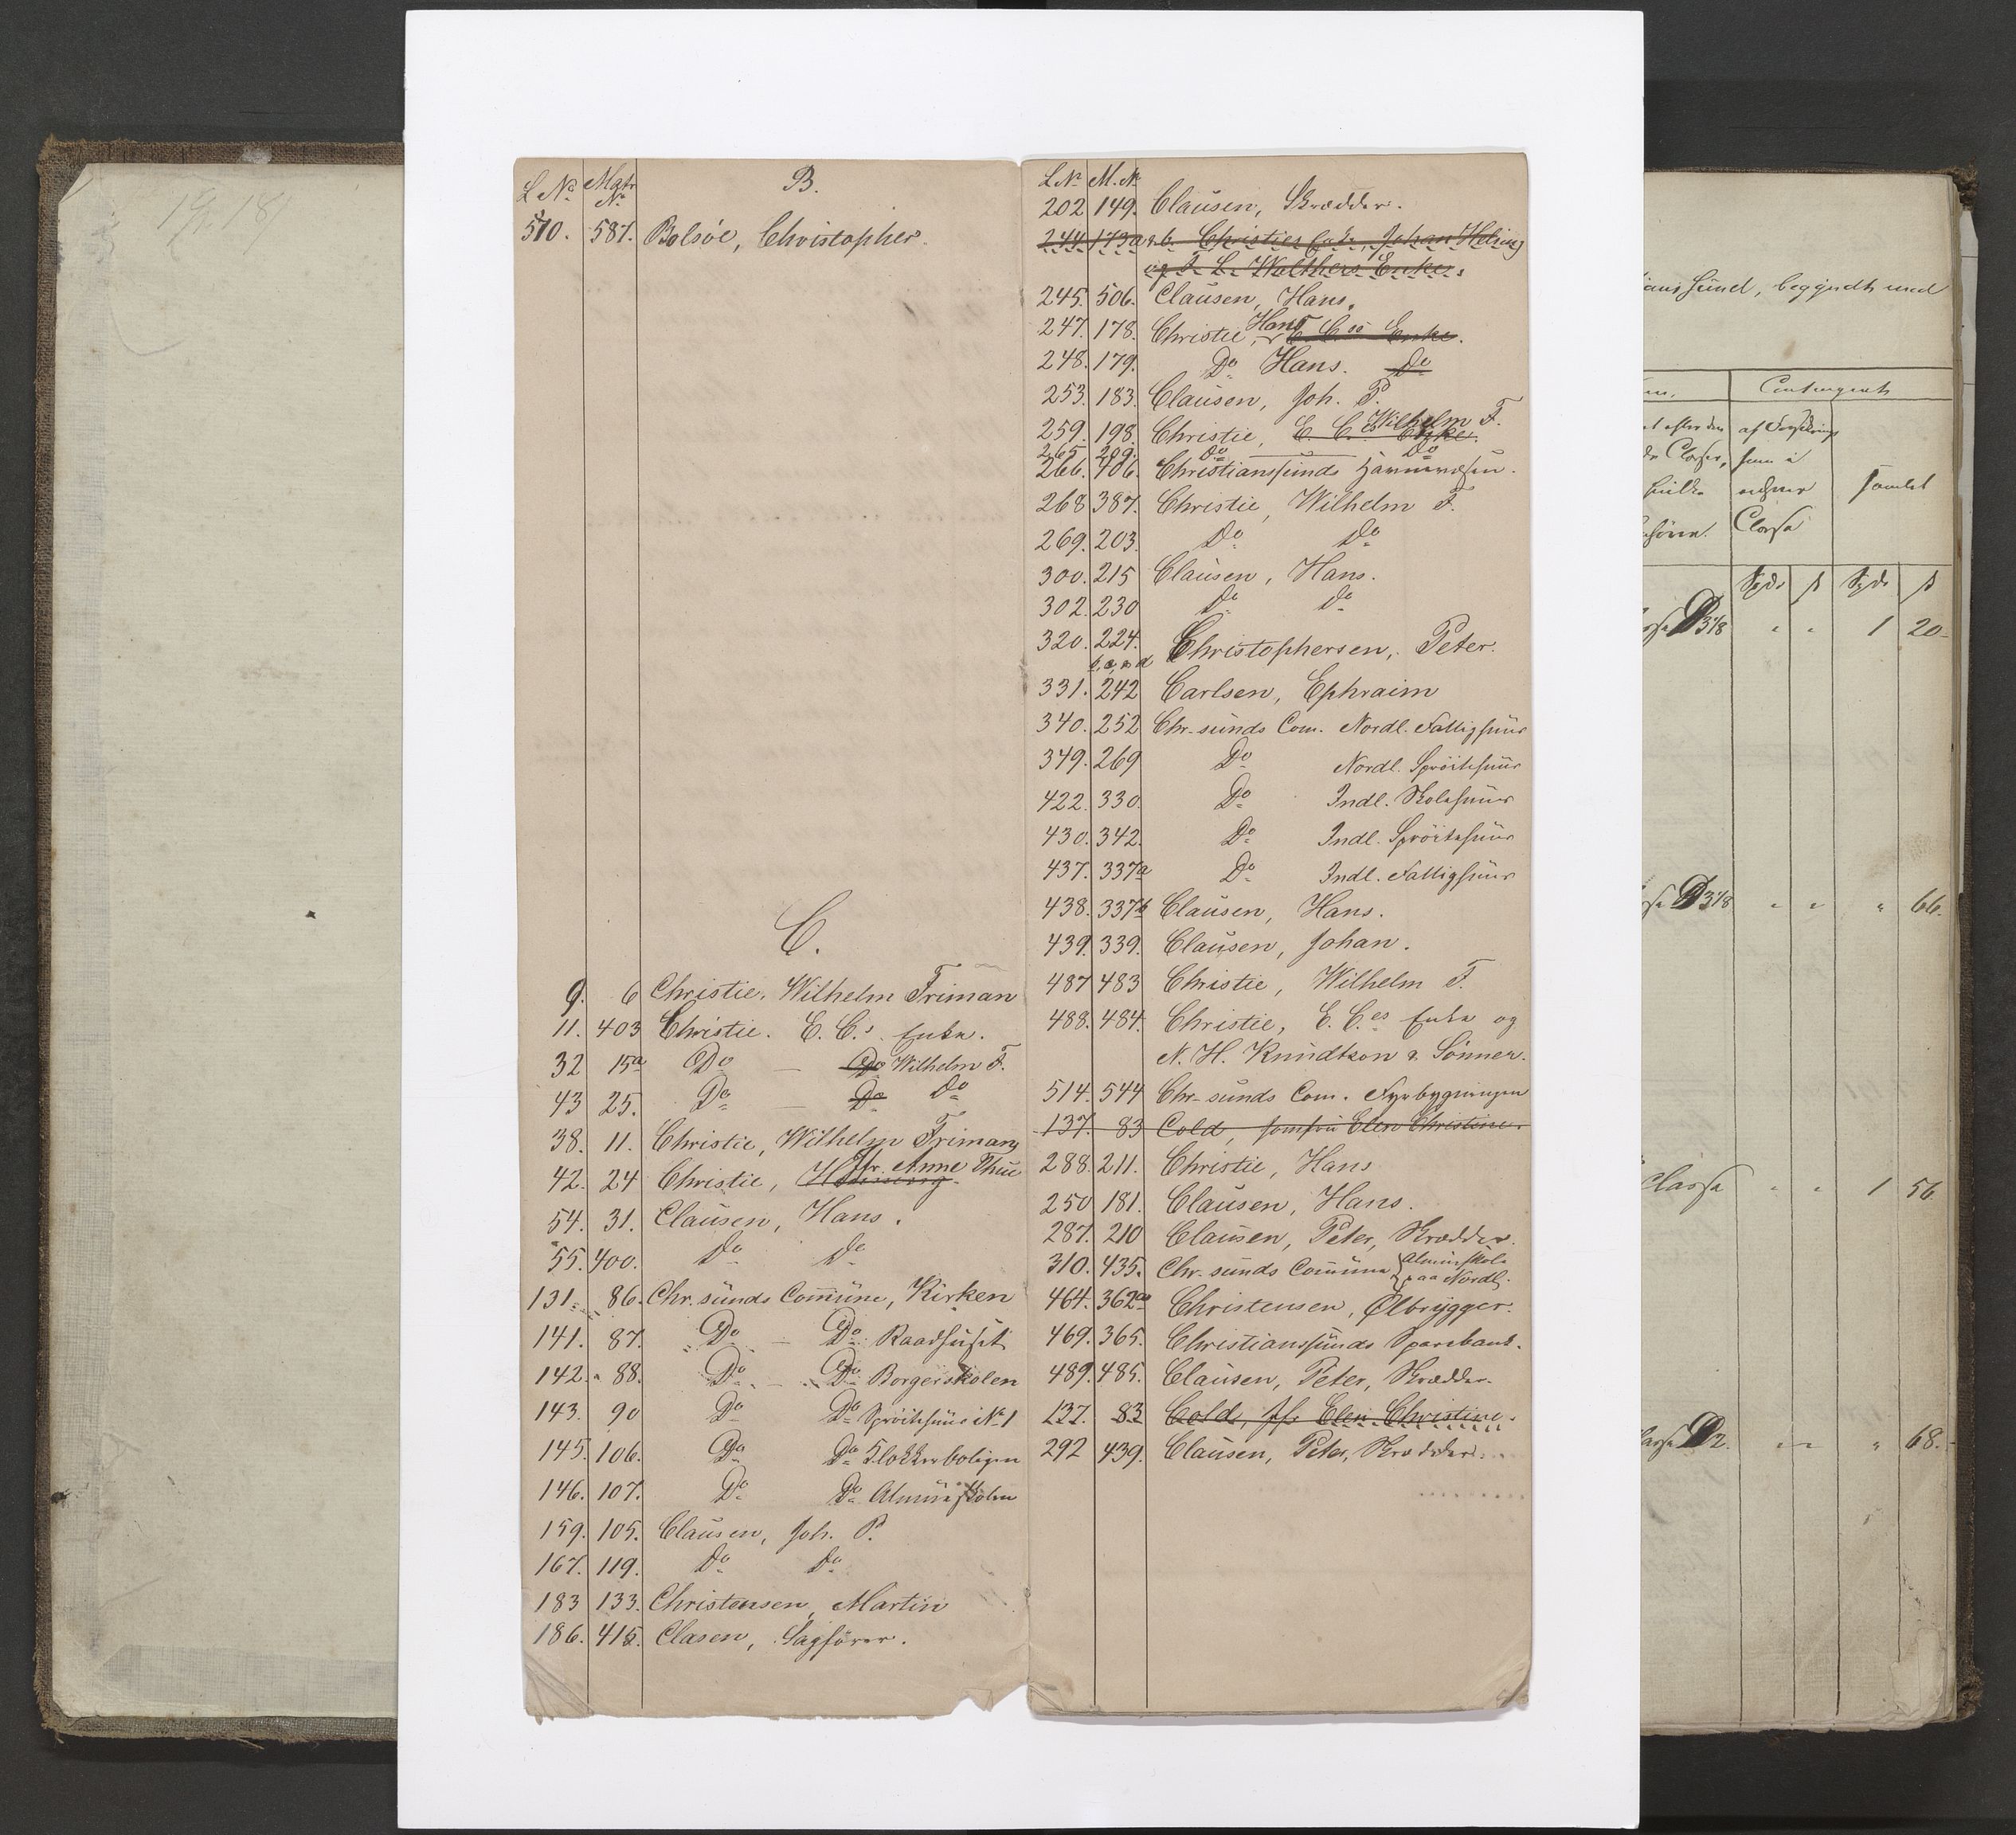 L No Mgtr No B.
510. 587. Bolsöe, Christopher.
C.
9. 6 Christie. Wilhelm Friman
11. 403 Christie. E. C.s Enke.
32 15a Do — Do Wilhelm F.
43 25. Do — Do Do
38. 11. Christie, Wilhelm Friman
42. 24 Christie, Jfr. Anne Thue
54. 31. Clausen, Hans.
55. 400. Do Do
131. 86. Chr.sunds Com̄une, Kirken
141. 87. Do — Do Raadhuset
142. 88. Do — Do Borgerskolen
143. 90 Do Do Spröitehuus No 1
145. 106. Do Do Klokkerboligen
146. 107. Do Do Almueskolen
159. 105. Clausen, Joh. P.
167. 119. Do Do
183 133. Christensen, Martin
186. 415. Clasen, Sagförer.
L No M. No
202 149. Clausen, Skrædder.
244 173a & b. Christies Enke, Johan Helsing
og F. L. Walthers Enke.
245. 506. Clausen, Hans.
247. 178. Christie, Hans E. C.es Enke.
248. 179. Do Hans. Do
253. 183. Clausen, Joh. P.
Wilhelm F.
259. 198. Christie, E. C.es Enke.
265 209. Do Do
266. 406. Christianssunds Havnevæsen.
268 387. Christie, Wilhelm F.
269. 203. Do Do
300. 215 Clausen, Hans.
302. 230 Do Do
320. 224. Christophersen, Peter.
331. 242 Carlsen, Ephraim
340. 252 Chr-sunds Com. Nordl. Fattighuus
349. 269 Do Nordl. Spröitehuus
422. 330. Do Indl. Skolehuus
430. 342. Do Indl. Spröitehuus
437. 337a Do Indl. Fattighuus
438. 337b Clausen, Hans.
439. 339. Clausen, Johan.
487 483 Christie, Wilhelm F.
488. 484. Christie, E. C.es Enke og
N. H. Knudtzon & Sönner.
514. 544 Chr-sunds Com. Fyrbygningen
137. 83 Cold, Jomfru Elen Christine.
288. 211. Christie, Hans
250 181. Clausen, Hans.
287. 210 Clausen, Peter, Skrædder.
310. 435. Chr-sunds Com̄une Almueskole
paa Nordl.
464. 362 Christensen, Ølbrygger.
469. 365. Christianssunds Sparebank.
489. 485. Clausen, Peter, Skrædder.
137. 83 Cold, Jfr. Elen Christine.
292 439. Clausen, Peter, Skrædder.
ianssund, begyndt med
Contingent
af
som i
samlet
Classe
Spd ß Spd ß
D 3 1/8 " " 1 20
D 3 1/8 " " " 66.
Classe " " 1 56
D 2. " " " 68.